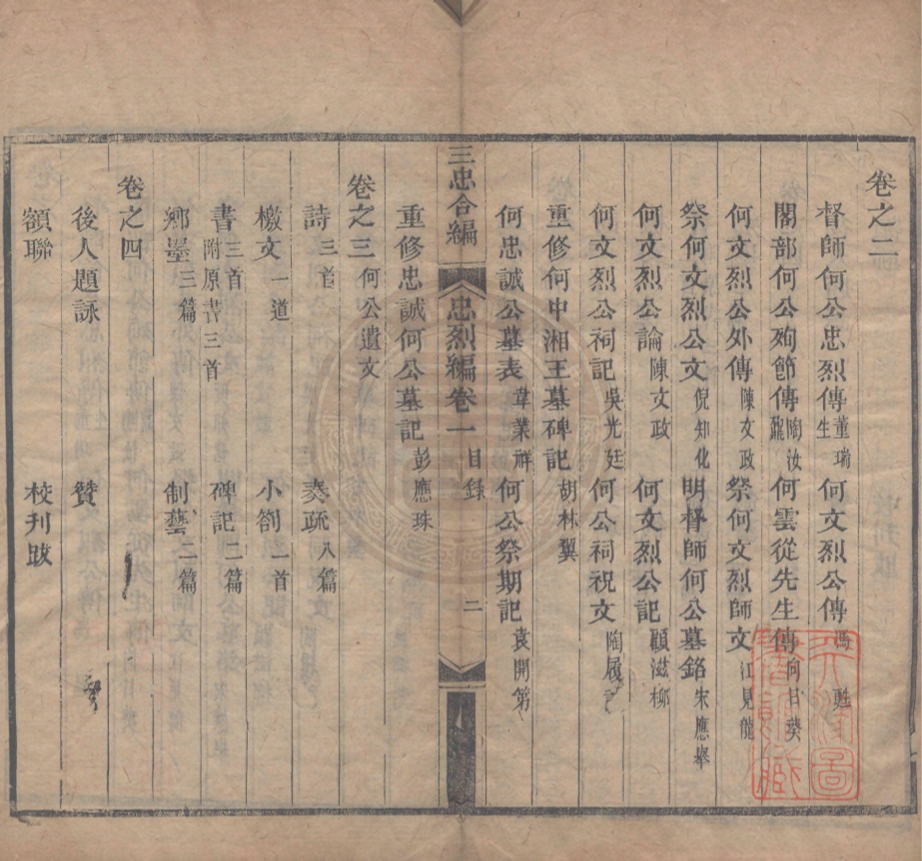 卷之二
督師何公忠烈傳 董瑞生 何文烈公傳 馮甦
閣部何公殉節傳 陶汝鼐 何雲從先生傳 向日葵
何文烈公外傳 陳文政 祭何文烈師文 江見龍
祭何文烈公文 倪知化 明督師何公墓銘 宋應舉
何文烈公論 陳文政 何文烈公記 顧滋柳
何文烈公祠記 吳光廷 何公祠祝文 陶履
重修何中湘王墓碑記 胡林翼
何忠誠公墓表 韋業祥 何公祭期記 袁開第
三忠合編 忠烈編卷一 目錄 二
重修忠誠何公墓記 彭應珠
卷之三 何公遺文
詩 三首 奏疏 八篇
檄文 一道 小劄 一首
書 三首 附原書三首 碑記 二篇
鄉墨 三篇 制藝 二篇
卷之四
後人題詠 贊
額聯 校刊跋